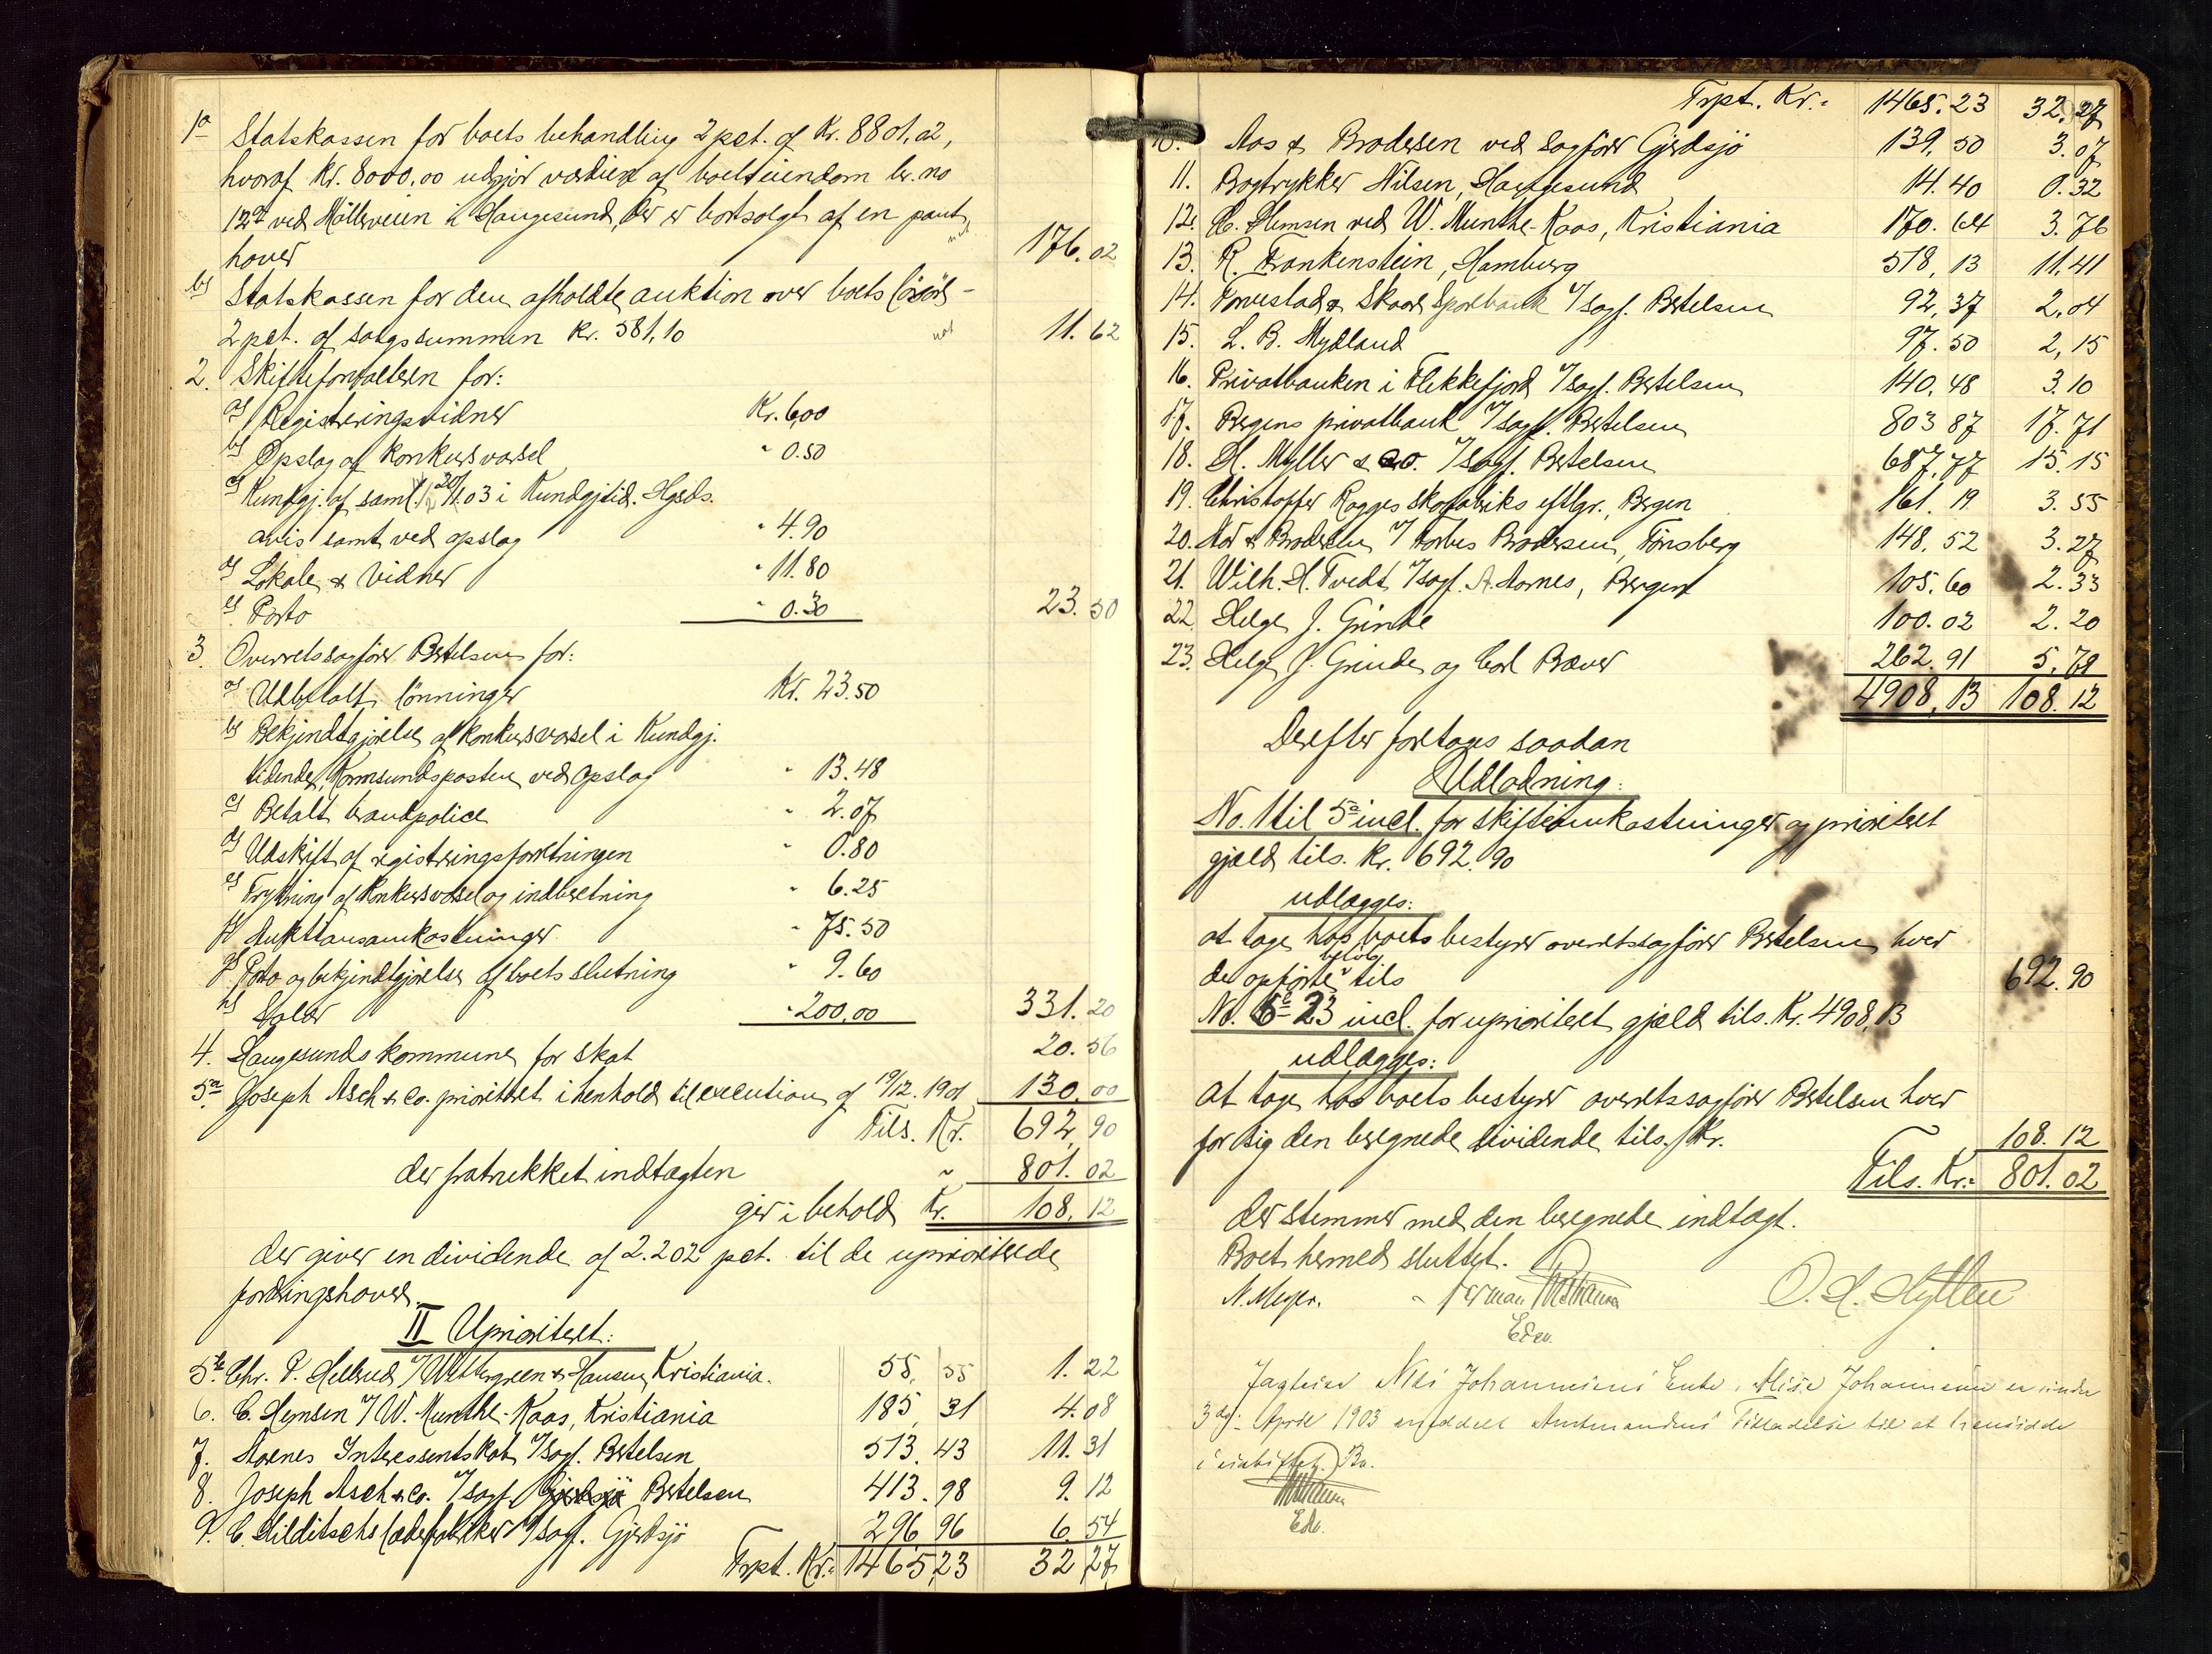 1a Statskassen for boets behandling 2 pct. af Kr. 8801,02,
hvoraf Kr. 8000,00 udgjør værdien af boets eiendom br. no
122 ved Mölleveien i Haugesund, der er bortsolgt af en pant
haver 176.02
b) Statskassen for den afholdte auktion over boets lösöre –
2 pct. af salgssummen Kr. 581,10 11.62
2. Skifteforvalteren for:
a) Registreringsvidner Kr. 6,00
b) Opslag af konkursvarsel " 0.50
c) Kundgj. af saml. 20/1.03 i Kundgjtid. Hgsds.
avis samt ved opslag " 4.90
d) Lokale & vidner " 11.80
e) Porto " 0.30 23.50
3. Overretssagfører Bertelsen for:
a) Udbetalt lönninger Kr. 23.50
b) Bekjendtgjörelse af konkursvarsel i Kundgj.
tidende, Karmsundsposten ved opslag " 13.48
c) Betalt brandpolice " 2.07
d) Udskrift af registreringsforretningen " 0.80
e) Trykning af konkursvarsel og indberetning " 6.25
f) Auktionsomkostninger " 75.50
g) Porto og bekjendtgjörelse af boets slutning " 9.60
h) Salær " 200,00 331.20
4. Haugesunds kommune for skat 20.56
5a Joseph Asch & Co. prioritet i henhold til execution af 19/12. 1901 130,00
Tils. Kr. 692,90
der fratrukket indtægten " 801.02
gir i behold Kr. 108,12
der giver en dividende af 2.202 pct. til de uprioriterede
fordringshavere.
II Uprioritert:
5b Chr. P. Hellerud v/ Wettergreen & Hansen, Kristiania. 55,55 1.22
6. C. Hemsen v/ W. Munthe-Kaas, Kristiania 185,31 4.08
7. Aarnes Interessentskab v/sagf. Bertelsen 513.43 11.31
8. Joseph Asch & Co. v/sagf. Bertelsen 413.98 9.12
9. C. Hilditschs læderfabriker v/sagf. Gjerdsjö 296,96 6.54
Trpt. Kr. 1465,23 32,27
Trpt. Kr. 1465.23 32.27
10. Aas & Brodersen ved sagfører Gjerdsjö 139,50 3.07
11. Bogtrykker Nilsen, Haugesund 14.40 0.32
12. C. Hemsen ved W. Munthe-Kaas, Kristiania 170.64 3.76
13. R. Frankenstein, Hamburg 518,13 11,41
14. Torvestad & Skaare Sparebank v/sagf. Bertelsen 92,37 2,04
15. L. B. Mydland 97.50 2,15
16. Privatbanken i Flekkefjord v/sagf. Bertelsen 140,48 3.10
17. Bergens privatbank v/sagf. Bertelsen 803 87 17.71
18. H. Myller & Co. v/sagf. Bertelsen 687,77 15.15
19. Christoffer Ragges skofabriks eftfgr., Bergen 161.19 3.55
20. Aas & Brodersen v/ Forbes Brodersen, Tönsberg 148,52 3.27
21. Wilh. H. Tvedt v/sagf. A. Aarnes, Bergen 105,60 2.33
22. Helge J. Grinde 100.02 2.20
23. Helge J. Grinde og Carl Bæver 262.91 5,78
4908,13 108.12
Derefter foretages saadan
Udlodning:
No. 1 til 5a incl. for skifteomkostninger og prioritert
gjæld tils. Kr. 692.90
udlægges:
at tage hos boets bestyrer overretssagfører Bertelsen hver
de opførte beløb tils 692.90
No. 5b–23 incl. for uprioritert gjæld tils. Kr. 4908,13
udlægges:
at tage hos boets bestyrer overretssagfører Bertelsen hver
for sig den beregnede dividende tils. Kr. 108.12
Tils. Kr. 801.02
der stemmer med den beregnede indtægt.
Boet hermed sluttet.
N. Meyer. O. H. Hytten
Edsv.
Johannesens Enke, Johannesen er under
3 dg. April 1903 meddelt Amtmandens Tilladelse til at hensidde
i uskiftet Bo.
Edv.